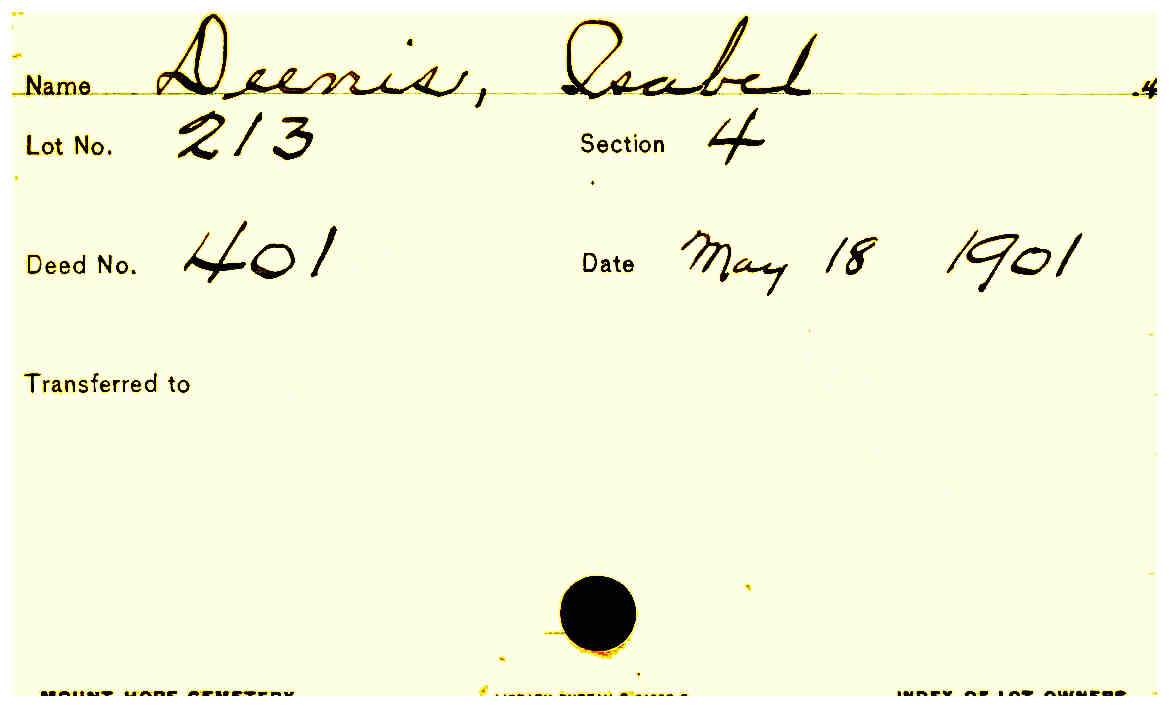 Name Deenis, Isabel
Lot No. 213 Section 4
Deed No. 401 Date May 18 1901
Transferred to
MOUNT HOPE CEMETERY INDEX OF LOT OWNERS